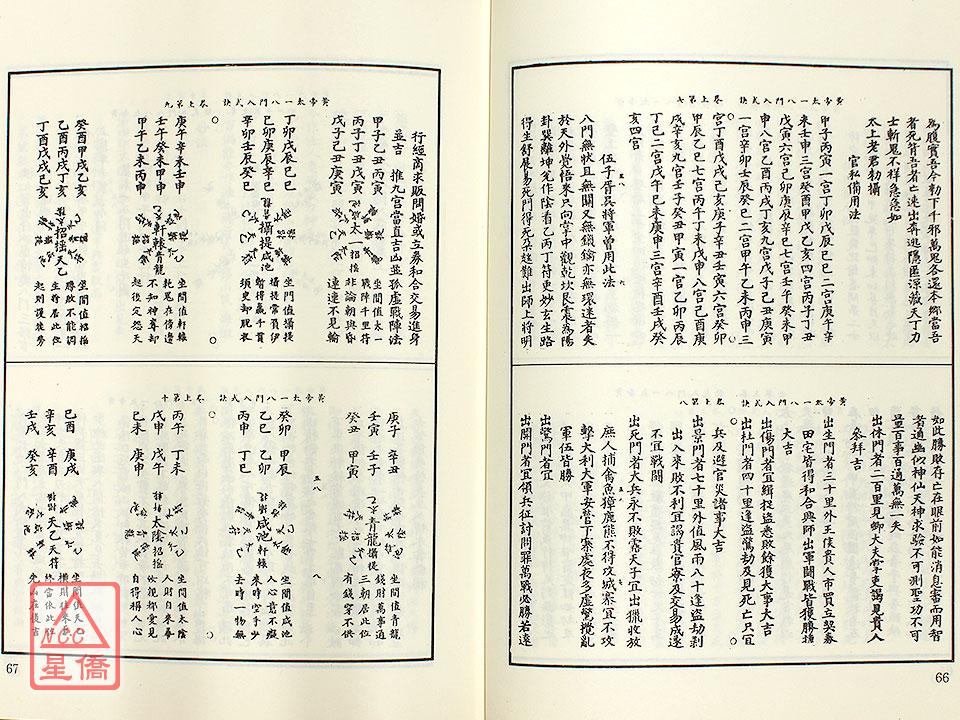 黃帝太一八門入式訣 卷上第七
為腹實吾今勅下千邪萬鬼各還本鄉當吾
者死背吾者亡速出奔逃隱匿源藏天丁力
士斬鬼不祥急急如
太上老君勅攝
官私備用法
甲子丙寅一宮丁卯戊辰己巳二宮庚午辛
未壬申三宮癸酉甲戌乙亥四宮丙子丁丑
戊寅六宮己卯庚辰辛巳七宮壬午癸未甲
申八宮乙酉丙戌丁亥九宮戊子己丑庚寅
一宮辛卯壬辰癸巳二宮甲午乙未丙申三
宮丁酉戊戌己亥庚子辛丑壬寅六宮癸卯
甲辰乙巳七宮丙午丁未戊申八宮己酉庚
戌辛亥九宮壬子癸丑甲寅一宮乙卯丙辰
丁巳二宮戊午己未庚申三宮辛酉壬戌癸
亥四宮
伍子胥具將軍曾用此法
八門無狀且無關又無鎖鑰亦無環迷者失
於天外覺悟來只向掌中觀乾坎艮震為陽
卦巽離坤兌作陰看乙丙丁符更妙玄生路
得生舒展易死門得死足趑難出師上將明
黃帝太一八門入式訣 卷上第八
如此勝敗存亡在眼前如能消息審而用智
者通幽似神仙天神求驗不可測聖功不可
量百事百通萬無一失
出休門者二百里見卿大夫宰吏謁見貴人
參拜吉
出生門者三十里外王侯貴人市買造契券
田宅皆得和合興師出軍鬭戰皆獲勝擒
大吉
出傷門者宜緝捉盜悉敗餘獲大事大吉
出杜門者四十里逢盜驚劫及見死亡只宜
兵及避官災諸事大吉
出景門者七十里外值風雨八十逢盜劫剥
出入來敗不利宜謁貴官寮及交易成遂
不宜戰鬪
出死門者大兵永不敗露天子宜出獵收放
庶人捕禽魚獐鹿熊不得攻城寨宜不攻
擊大利大軍安營下寨處夜多虛驚攪亂
軍伍皆勝
出驚門者宜
出開門者宜領兵征討問罪萬戰必勝若遠
66
黃帝太一八門入式訣 卷上第九
行經商求販問婚或立券和合交易進身
並吉 推九宮當直吉凶並孤虛戰陣法
甲子乙丑丙寅
丙子丁丑戊寅
戊子己丑庚寅
太一 招搖
坐間值太一
戰陣千里符
非論朝與昏
遠達不見輪
丁卯戊辰己巳
己卯庚辰辛巳
辛卯壬辰癸巳
攝提咸池
坐門值攝提
攝提常須伊
暫得贏千貫
須臾却脫衣
庚午辛未壬申
壬午癸未甲申
甲午乙未丙申
軒轅青龍
坐間值軒轅
乾尾在傍邊
不知神尊却
起後定怨天
癸酉甲戌乙亥
乙酉丙戌丁亥
丁酉戊戌己亥
招搖天乙
坐間值招搖
勝敗不能凋
生將居此位
起則復徒勞
黃帝太一八門入式訣 卷上第十
庚子 辛丑
壬寅 壬子
癸丑 甲寅
青龍攝提
坐間值青龍
錢財萬事通
三朝居此位
有錢穿不供
癸卯 甲辰
乙巳 乙卯
丙申 丁巳
咸池軒轅
坐間值咸池
人心意不癡
來時空手少
去時一物無
丙午 丁未
戊申 戊午
己未 庚申
太陰招搖
坐間值太陰
人財自來尋
自得稱人心
己酉 庚戌
辛亥 辛酉
壬戌 癸亥
天乙天符
坐間值天
67
ncc
星僑